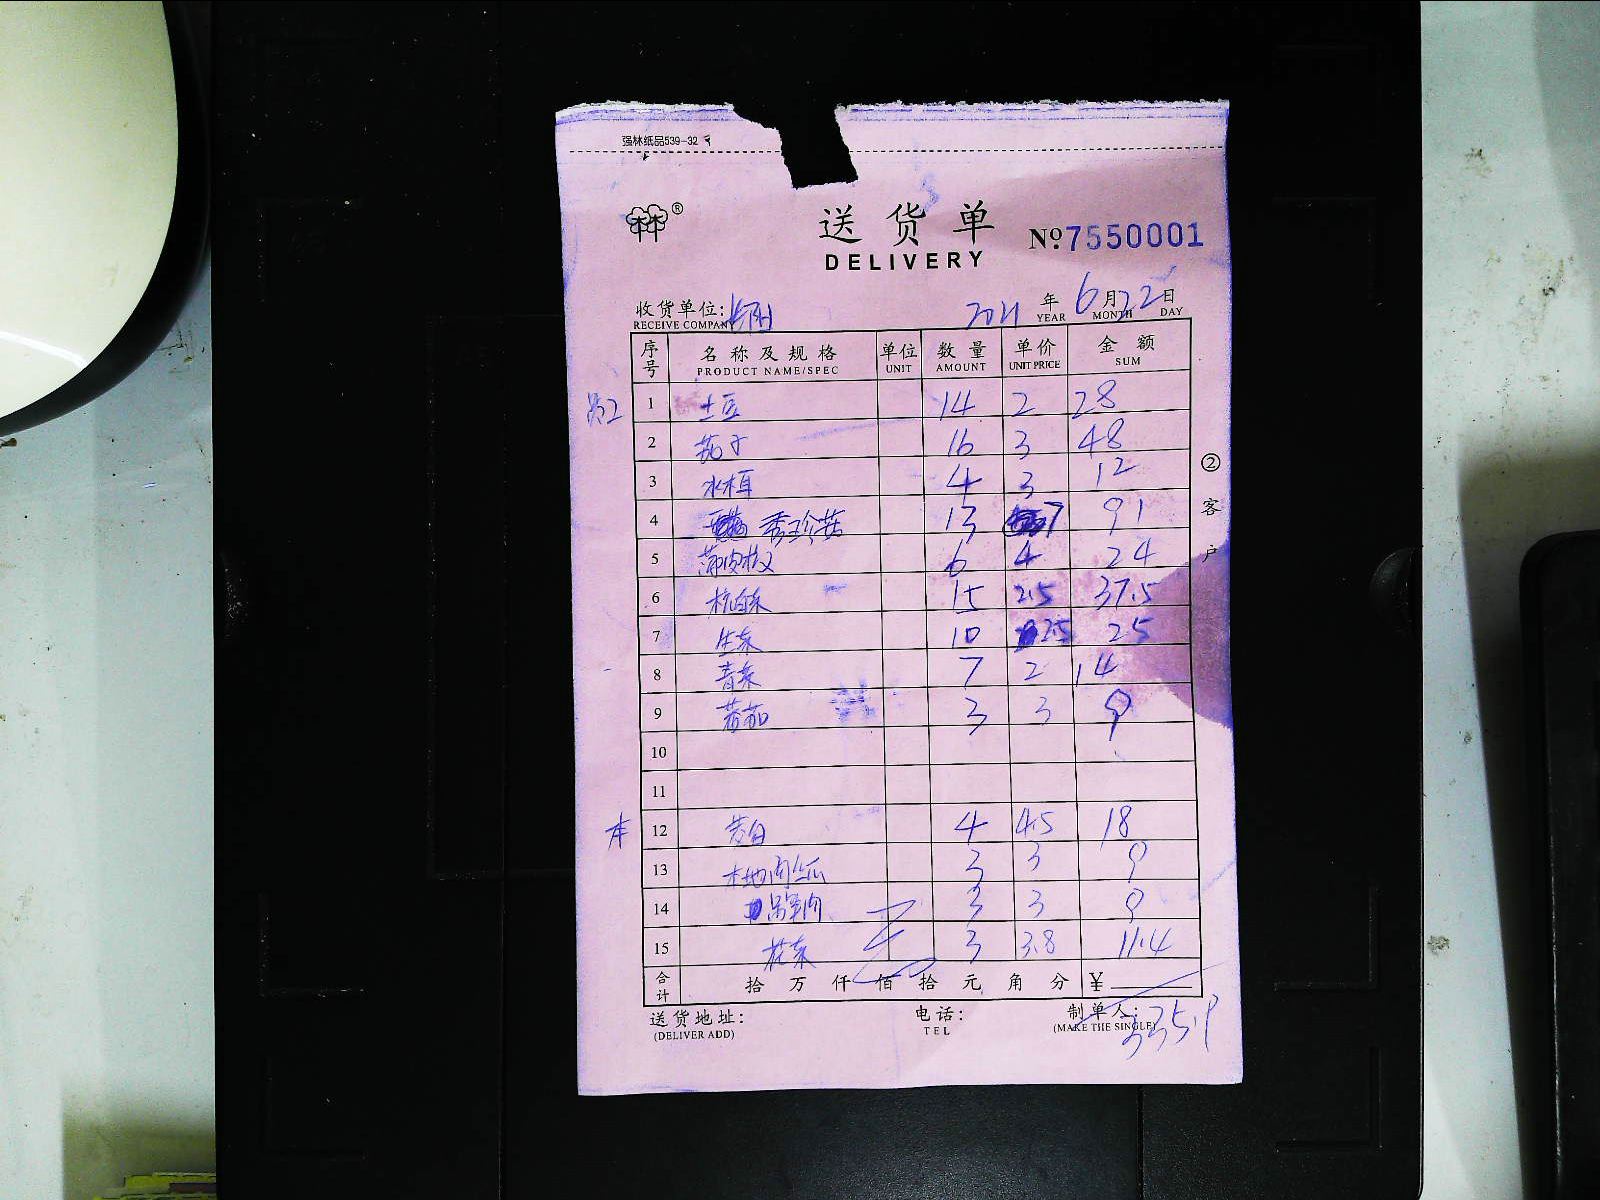 强林纸品539-32
®
送货单
№7550001
DELIVERY
收货单位: 2021年6月22日
RECEIVE COMPANY YEAR MONTH DAY
序号 名称及规格 单位 数量 单价 金额
PRODUCT NAME/SPEC UNIT AMOUNT UNIT PRICE SUM
员工 1 土豆 14 2 28
2 茄子 16 3 48
3 水木耳 4 3 12
4 秀珍菇 13 7 91
5 6 4 24
6 杭白菜 15 2.5 37.5
7 生菜 10 2.5 25
8 青菜 7 2 14
9 蕃茄 3 3 9
10
11
12 茭白 4 4.5 18
13 本地 3 3 9
14 3 3 9
15 花菜 3 3.8 11.4
合计 拾 万 仟 佰 拾 元 角 分 ¥
335.9
送货地址: 电话: 制单人:
(DELIVER ADD) TEL (MAKE THE SINGLE)
②客户